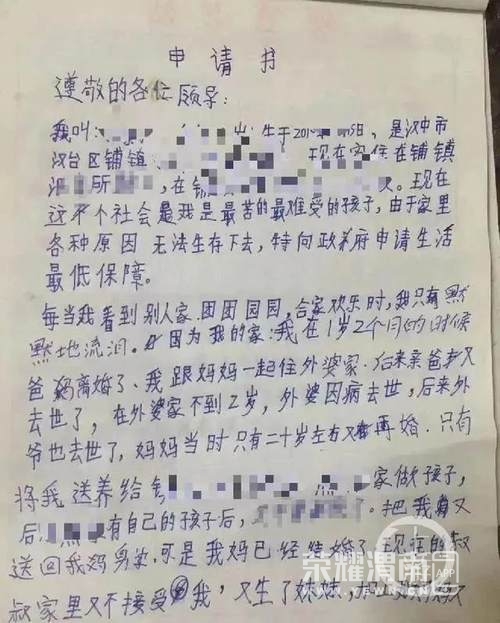 申请书
尊敬的各位领导:
我叫 生于20 是汉中市
汉台区铺镇 现在家住在铺镇
所 ,在 。现在
这个社会是我是最苦的最难受的孩子,由于家里
各种原因 无法生存下去,特向政府申请生活
最低保障。
每当我看到别人家 团团园园,合家欢乐时,我只有默
默地流泪。因为我的家:我在1岁2个月的时候
爸妈离婚了、我跟妈妈一起住外婆家.后来亲爸
去世了,在外婆家不到2岁,外婆因病去世,后来外
爷也去世了,妈妈当时只有二十岁左右又再婚.只有
将我送养给 家做孩子,
后 有自己的孩子后, 。把我又
送回我妈 可是我妈已经结婚了现在的叔
叔家里又不接受我,又生了妹妹,
荣耀汉南 APP